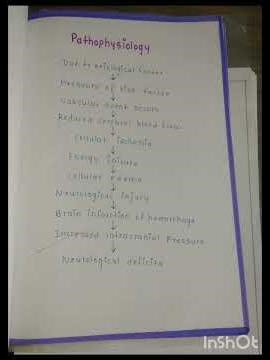 Pathophysiology
Due to etiological factor
Presence of risk factor
Vascular event occurs
Reduced cerebral blood flow
Cellular ischemia
Energy failure
Cellular edema
Neurological injury
Brain infarction of hemorrhage
Increased intracranial Pressure
Neurological deficits
InShot